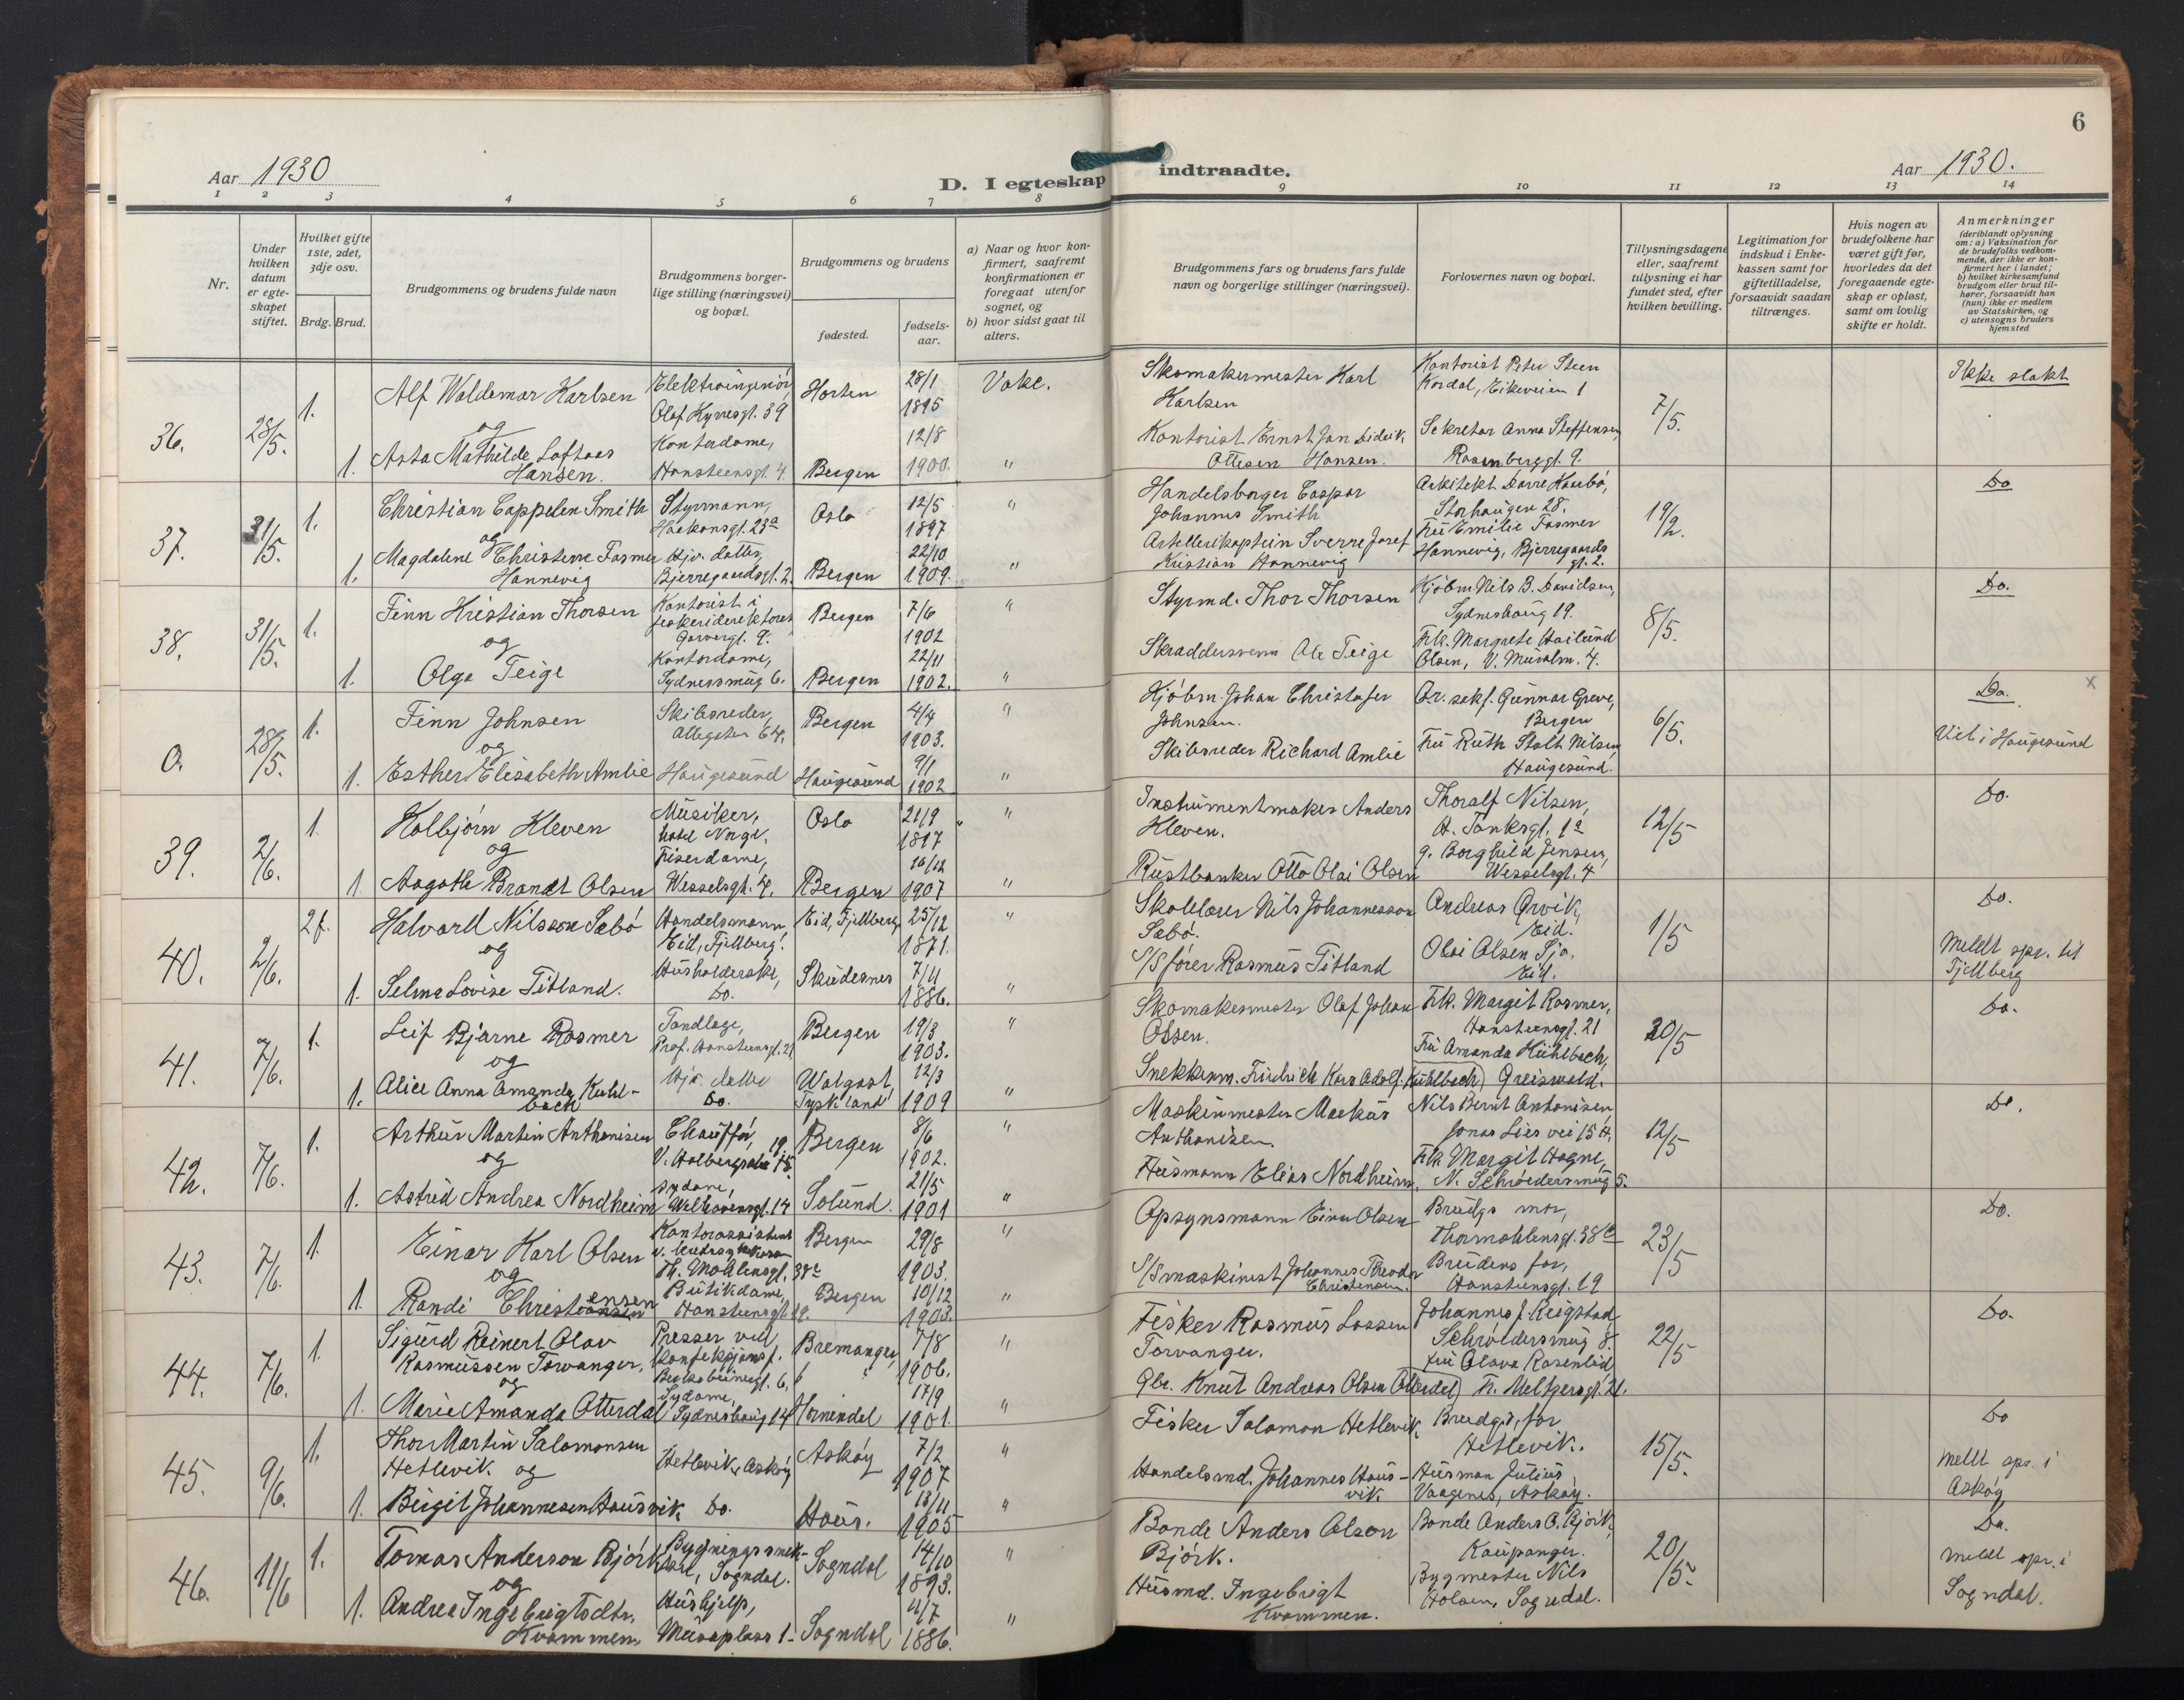 6
Aar 1930
D. I egteskap indtraadte.
Aar 1930.
1 2 3 4 5 6 7 8 9 10 11 12 13 14
Nr.
Under hvilken datum er egteskapet stiftet.
Hvilket gifte 1ste, 2det, 3dje osv.
Brdg. Brud.
Brudgommens og brudens fulde navn
Brudgommens borgerlige stilling (næringsvei) og bopæl.
Brudgommens og brudens
fødested.
fødselsaar.
a) Naar og hvor konfirmert, saafremt konfirmationen er foregaat utenfor sognet, og
b) hvor sidst gaat til alters.
Brudgommens fars og brudens fars fulde navn og borgerlige stillinger (næringsvei).
Forlovernes navn og bopæl.
Tillysningsdagene eller, saafremt tillysning ei har fundet sted, efter hvilken bevilling.
Legitimation for indskud i Enkekassen samt for giftetilladelse, forsaavidt saadan tiltrænges.
Hvis nogen av brudefolkene har været gift før, hvorledes da det foregaaende egteskap er opløst, samt om lovlig skifte er holdt.
Anmerkninger (deriblandt oplysning om: a) Vaksination for de brudefolks vedkommende, der ikke er konfirmert her i landet; b) hvilket kirkesamfund brudgom eller brud tilhører, forsaavidt han (hun) ikke er medlem av Statskirken, og c) utensogns bruders hjemsted
36. 28/5. 1. Alf Waldemar Karlsen Elektroingeniør, Olaf Kyrresgt. 39 Horten 28/1 1895 Vake. Skomakermester Karl Karlsen Kontorist Peter Steen Kordal, Eikeveien 1 7/5. Ikke slekt
og
1. Asta Mathilde Loftaas Hansen. Kontordame, Hansteensgt. 4 Bergen 12/8 1900. " Kontorist Ernst Jan Didrik Ottesen Hansen. Sekretær Anna Steffensen, Rosenberggt. 9.
37. 31/5. 1. Christian Cappelen Smith Styrmann, Haakonsgt. 23a Oslo 12/5 1897 " Handelsborger Caspar Johannes Smith Arkitekt Dørre Haabø, Storhaugen 28. 19/2. Do
og
1. Magdalene Christine Fasmer Hannevig Hjv. datter, Bjerregaardsgt. 2 Bergen 22/10 1909. " Artillerikaptein Sverre Josef Kristian Hannevig Fru Emilie Fasmer Hannevig, Bjerregaards gt. 2.
38. 31/5. 1. Finn Kristian Thorsen Kontorist i fiskeridirektoret Garvergt. 9. Bergen 7/6 1902 " Styrmd. Thor Thorsen Kjøbm. Nils B. Davidsen, Sydneshaug 19. 8/5. Do.
og
1. Olga Teige Kontordame, Sydnessmug 6. Bergen 22/11 1902. " Skraddersvenn Ole Teige Frk. Margrete Olsen, V. Muralm. 4.
0. 28/5. 1. Finn Johnsen Skibsreder, Allegaten 64. Bergen 4/4 1903. " Kjøbm. Johan Christofer Johnsen. Or. sakf. Gunnar Greve, Bergen 6/5. Do. x
og
1. Esther Elisabeth Amlie Haugesund Haugesund 9/1 1902 " Skibsreder Richard Amlie Fru Ruth Stolt Nilsen Haugesund. Viet i Haugesund
39. 2/6. 1. Kolbjørn Kleven Musiker, hotel Norge. Oslo 21/9 1897 " Instrumentmaker Anders Kleven. Thoralf Nilsen, A. Tanksgt. 1a 12/5 Do.
og
1. Aagoth Brandt Olsen Friserdame, Wesselsgt. 4. Bergen 16/12 1907 " Rustbanker Otto Olai Olsen g. Borghild Jensen, Wesselsgt. 4
40. 2/6. 2f. Halvard Nilsson Sæbø Handelsmann, Eid, Fjellberg. Eid, Fjellberg 25/12 1871. " Skolelærer Nils Johannesson Sæbø. Andreas Ørvik, Eid. 1/5 Do.
og
1. Selma Lovise Titland. Husholderske, Do. Skudesnes 7/11 1886. " S/S fører Rasmus Titland Olai Olsen Eid. Meldt spr. til Fjellberg
41. 7/6. 1. Leif Bjarne Rosmer Tandlæge, Prof. Hansteensgt. 21 Bergen 19/3 1903. " Skomakermester Olaf Johan Olsen. Frk. Margit Rosmer, Hansteensgt. 21 20/5 Do.
og
1. Alice Anna Amanda Kuhlbach Hjv. datter Do. Wolgast, Tyskland 12/3 1909 " Snekkerm. Fridrich Karl Adolf Kühlbach) Fru Amanda Kühlbach, Greiswald.
42. 7/6. 1. Arthur Martin Anthonisen Chauffør, V. Holbergsalm. 19 Bergen 8/6 1902. " Maskinmester Markus Anthonisen. Nils Bernt Antonisen Jonas Lies vei 15 A. 12/5 Do.
og
1. Astrid Andrea Nordheim Sydame, Welhavensgt. 14 Solund. 21/5 1901 " Husmann Elias Nordheim, Frk. Margit Hogne, N. Schrøedersmug 5.
43. 7/6. 1. Einar Karl Olsen Kontorassistent Th. Mohlensgt. 38c Bergen 29/8 1903. " Opsynsmann Einar Olsen Brudgs mor, Thormohlensgt. 38c 23/5 Do.
og
1. Randi Christensen Butikdame, Hansteensgt. 19. Bergen 10/12 1903. " S/S maskinist Johannes Theodor Christensen. Brudens far, Hansteensgt. 19
44. 7/6. 1. Sigurd Reinert Olav Rasmussen Torvanger, Presser ved konfeksjonsf. Birkebeinergt. 6, Bremanger 7/8 1906. " Fisker Rasmus Lassen Torvanger. Johannes J. Reigstad, Schrøedersmug 8. 22/5 Do.
og
1. Marie Amanda Otterdal Sydame, Sydneshaug 14 Hornindal 17/9 1901. " Gbr. Knut Andreas Olsen Otterdal) Fru Olava Rosenlid, F. Meltzersgt. 21.
45. 9/6. 1. Thor Martin Salomonsen Hetlevik og Hetlevik, Askøy Askøy 7/2 1907 " Fisker Salomon Hetlevik, Brudgs. far Hetlevik. 15/5. Do
1. Birgit Johannesen Hausvik Do. Haus. 13/11 1905 " Handelsmd. Johannes Hausvik Husman Julius Vaagenes, Askøy. Meldt spr. i Askøy
46. 11/6 1. Tomas Anderson Bjørk Bygningssnekker, Sogndal. Sogndal 14/10 1893. " Bonde Anders Olson Bjørk. Bonde Anders O. Bjørk, Kaupanger. 20/5. Do.
og
1. Andrea Ingebrigtsdtr. Kvammen, Hushjelp, Museplass 1- Sogndal 4/7 1886. " Husmd. Ingebrigt Kvammen. Bygmester Nils Holsen, Sogndal. Meldt spr. i Sogndal.